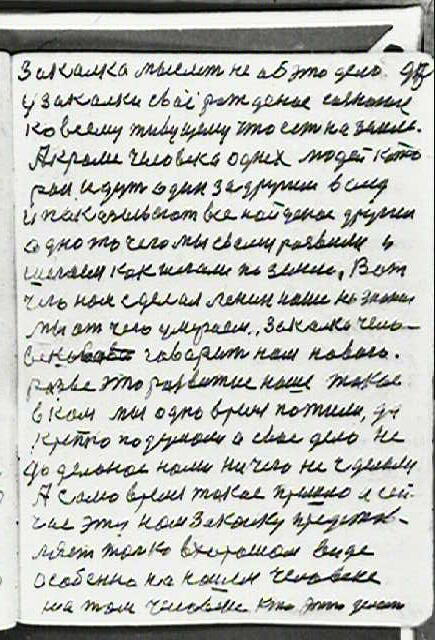 Закалка мыслит не аб это дело
у закалки своё рожденое сознание
ко всему живущему что есть на земле.
А кроме человека одних людей кото
рои идут один за другим в след
и показывают все найденое другим
одно то чего мы своим развили и
шагаем как шагали по земле, Вот
чего нам сделал Ленин наше не знание
мы от чего умираем, Закалка чело-
века говарит нам нового.
разве это развитие наше такое
в ком мы одно время пожили, да
крепко подумали а свое дело не
доделоное нами ничего не сделали
А само время такое пришло и сей-
час эту нам Закалку представ-
ляет толко в хорошом виде
особенно на нашем человеке
на том человеке кто это делает